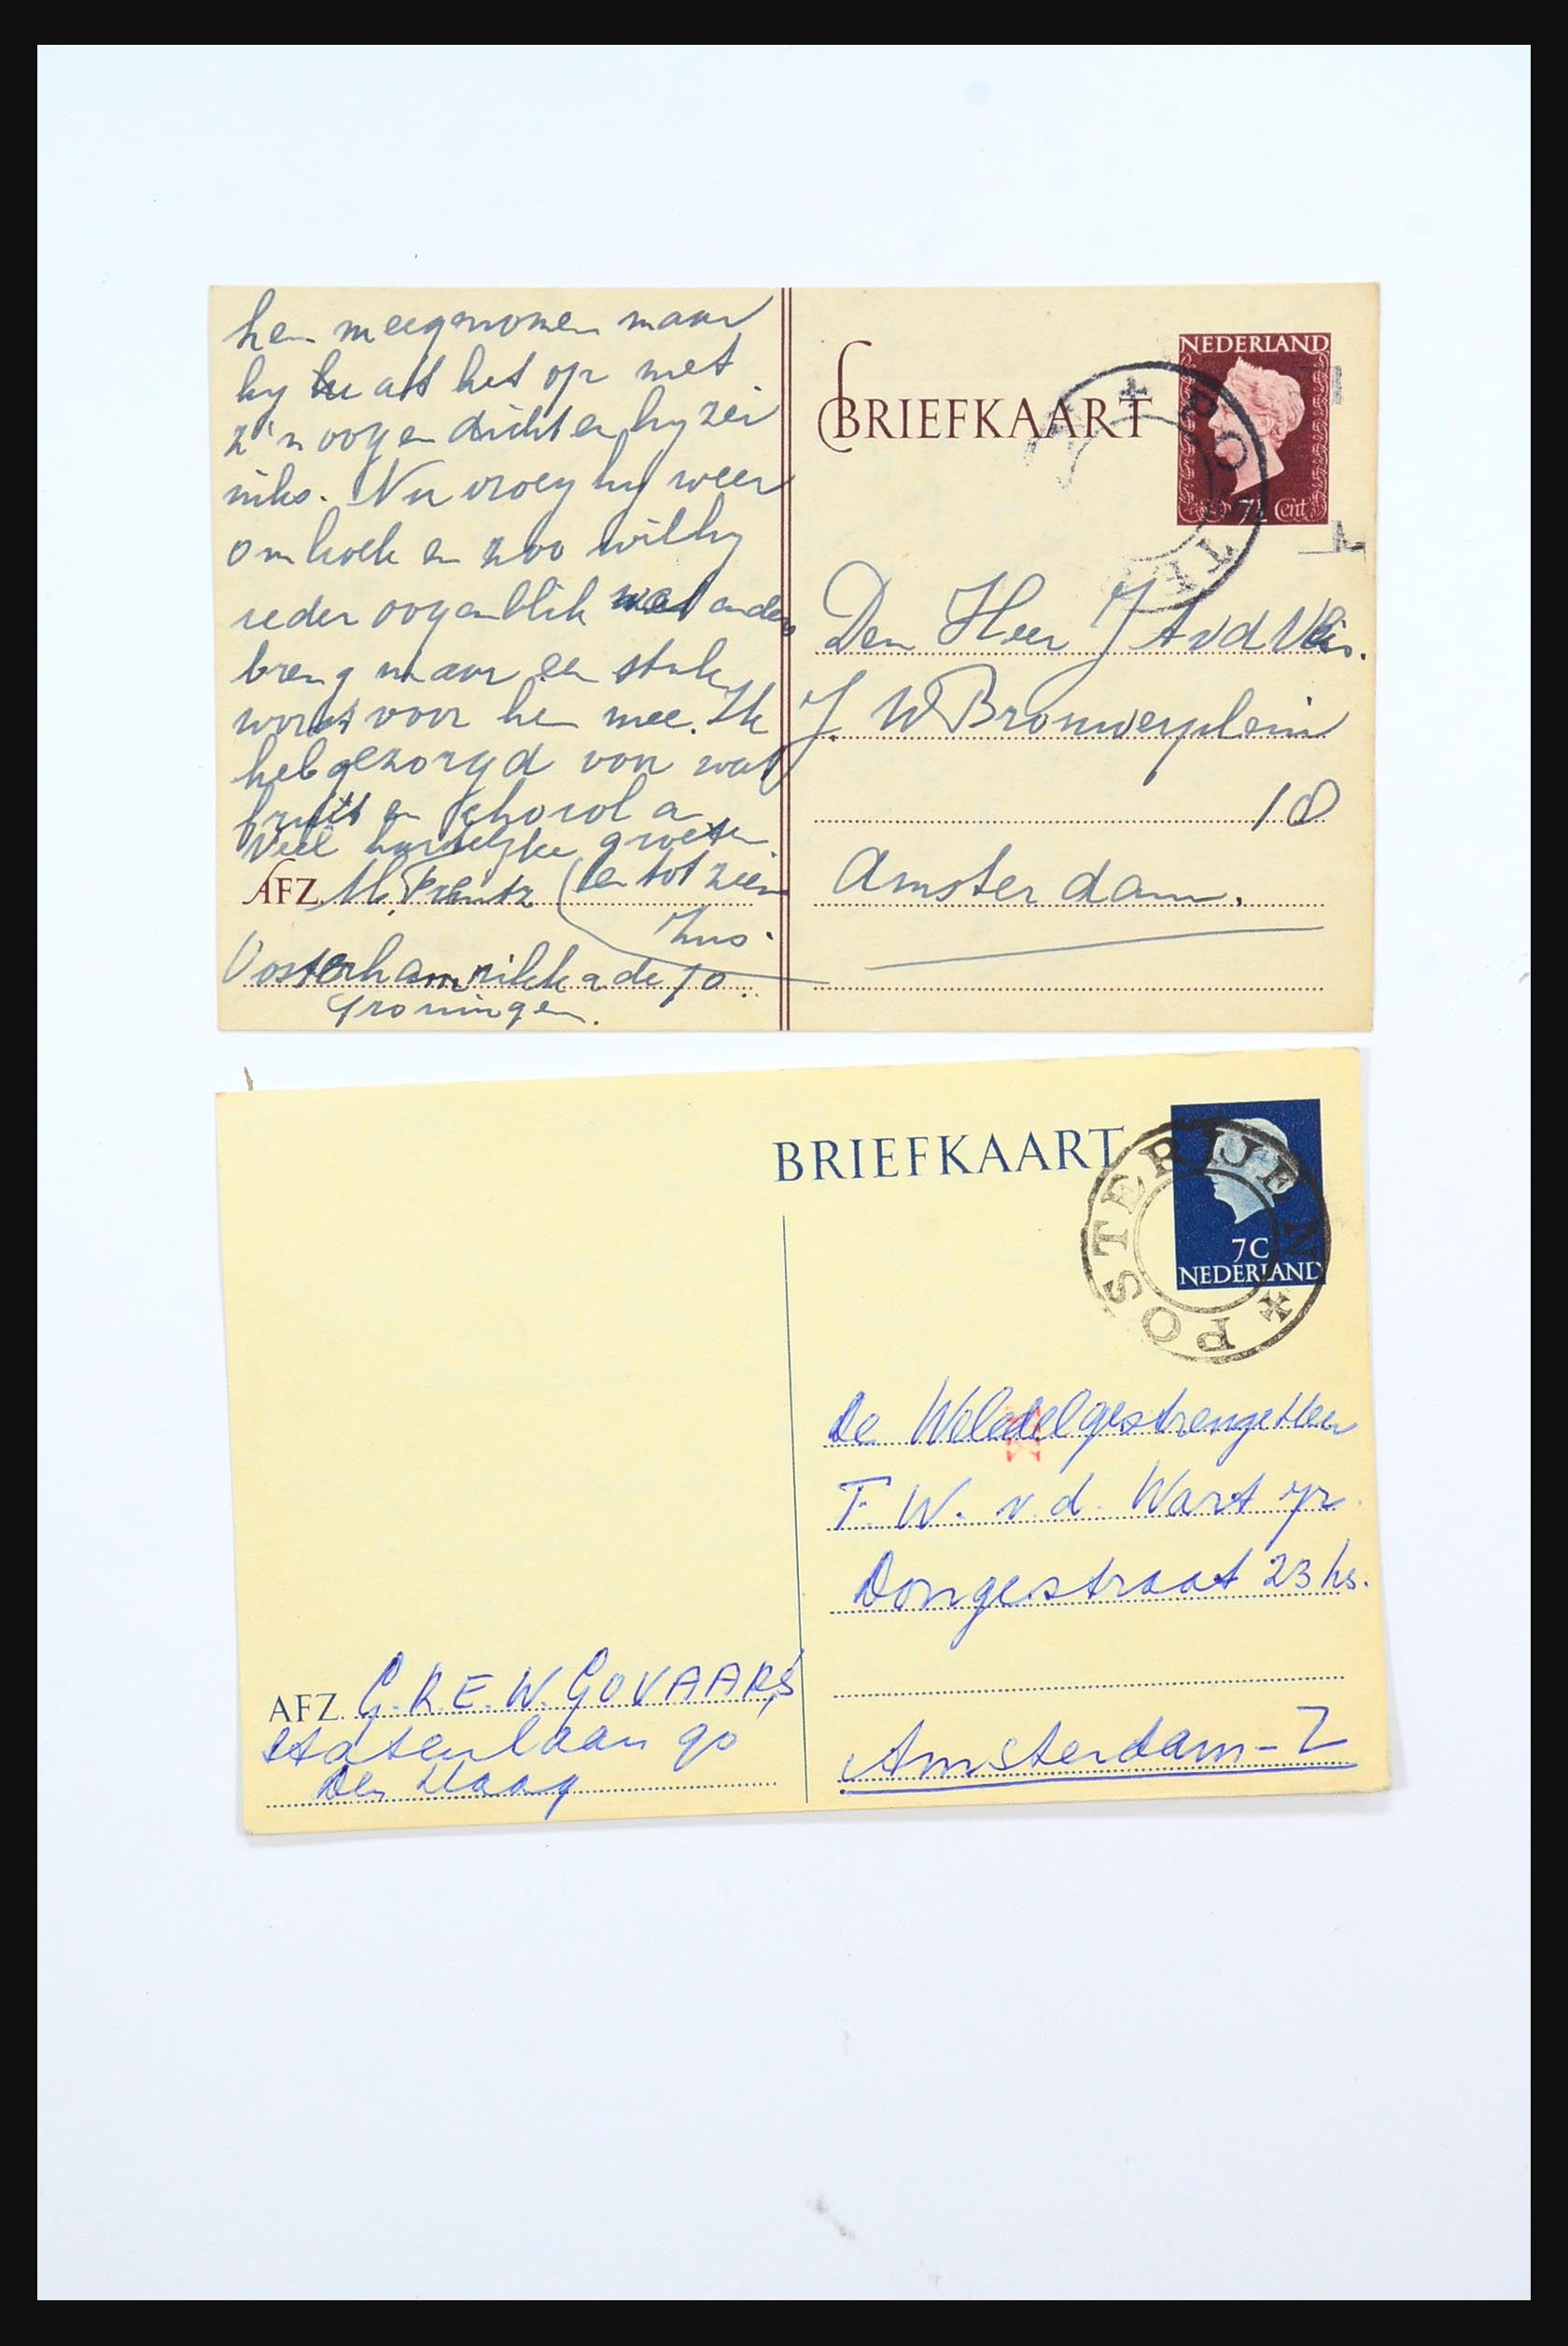 hem meegenomen maar
hy at het op met
z'n oogen dicht en hy zei
niks. Nu vroeg hy weer
om koek en zoo wil hy
ieder oogenblik wat anders
breng maar een stuk
worst voor hem mee. Ik
heb gezorgd voor wat
fruit en chocola
Veel hartelyke groeten
AFZ. M. (en tot ziens
Zus.
Oosterhamrikkade 70.
Groningen.
NEDERLAND
BRIEFKAART
7½ Cent
POSTE
Den Heer J A v d
J. W Brouwersplein
18
Amsterdam.
BRIEFKAART
7C
NEDERLAND
POSTERIJEN
De Weledelgestrenge Heer
F. W. v. d. Wart jr.
Dongestraat 23 hs.
Amsterdam-Z
AFZ. G.R.E.W. GOVAARS
Statenlaan 90
Den Haag